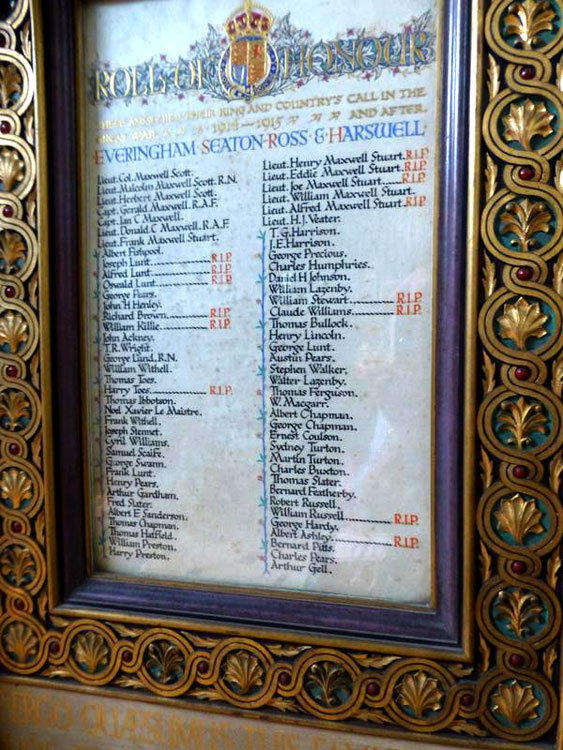 ROLL OF HONOUR
THEY ANSWERED THEIR KING AND COUNTRY'S CALL IN THE
GREAT WAR 1914-1915 AND AFTER.
EVERINGHAM SEATON-ROSS & HARSWELL
Lieut. Col. Maxwell Scott.
Lieut. Malcolm Maxwell Scott. R.N.
Lieut. Herbert Maxwell Scott.
Capt. Gerald Maxwell. R.A.F.
Capt. Ian C Maxwell.
Lieut. Donald C Maxwell. R.A.F.
Lieut. Frank Maxwell Stuart.
Albert Fishpool.
Joseph Lunt R.I.P.
Alfred Lunt R.I.P.
Oswald Lunt R.I.P.
George Pears.
John H Henley.
Richard Brown R.I.P.
William Killie R.I.P.
John Ackney.
T.R. Wright.
George Lund. R.N.
William Withell.
Thomas Toes.
Harry Toes R.I.P.
Thomas Ibbotson.
Noel Xavier Le Maistre.
Frank Withell.
Joseph Stennet.
Cyril Williams.
Samuel Scaife.
George Swann.
Frank Lunt.
Henry Pears.
Arthur Gardham.
Fred Slater.
Albert E Sanderson.
Thomas Chapman.
Thomas Hatfield.
William Preston.
Harry Preston.
Lieut. Henry Maxwell Stuart. R.I.P.
Lieut. Eddie Maxwell Stuart. R.I.P.
Lieut. Joe Maxwell Stuart R.I.P.
Lieut. William Maxwell Stuart.
Lieut. Alfred Maxwell Stuart. R.I.P.
Lieut. H.J. Veater.
T.G. Harrison.
J.E. Harrison.
George Precious.
Charles Humphries.
David H Johnson.
William Lazenby.
William Stewart R.I.P.
Claude Williams R.I.P.
Thomas Bullock.
Henry Lincoln.
George Lunt.
Austin Pears.
Stephen Walker.
Walter Lazenby.
Thomas Ferguson.
W. Macgarr.
Albert Chapman.
George Chapman.
Ernest Coulson.
Sydney Turton.
Martin Turton.
Charles Buxton.
Thomas Slater.
Bernard Featherby.
Robert Russell.
William Russell R.I.P.
George Hardy.
Albert Ashley R.I.P.
Bernard Pitts.
Charles Pears.
Arthur Gell.
ERGO QUAESUMUS TUIS